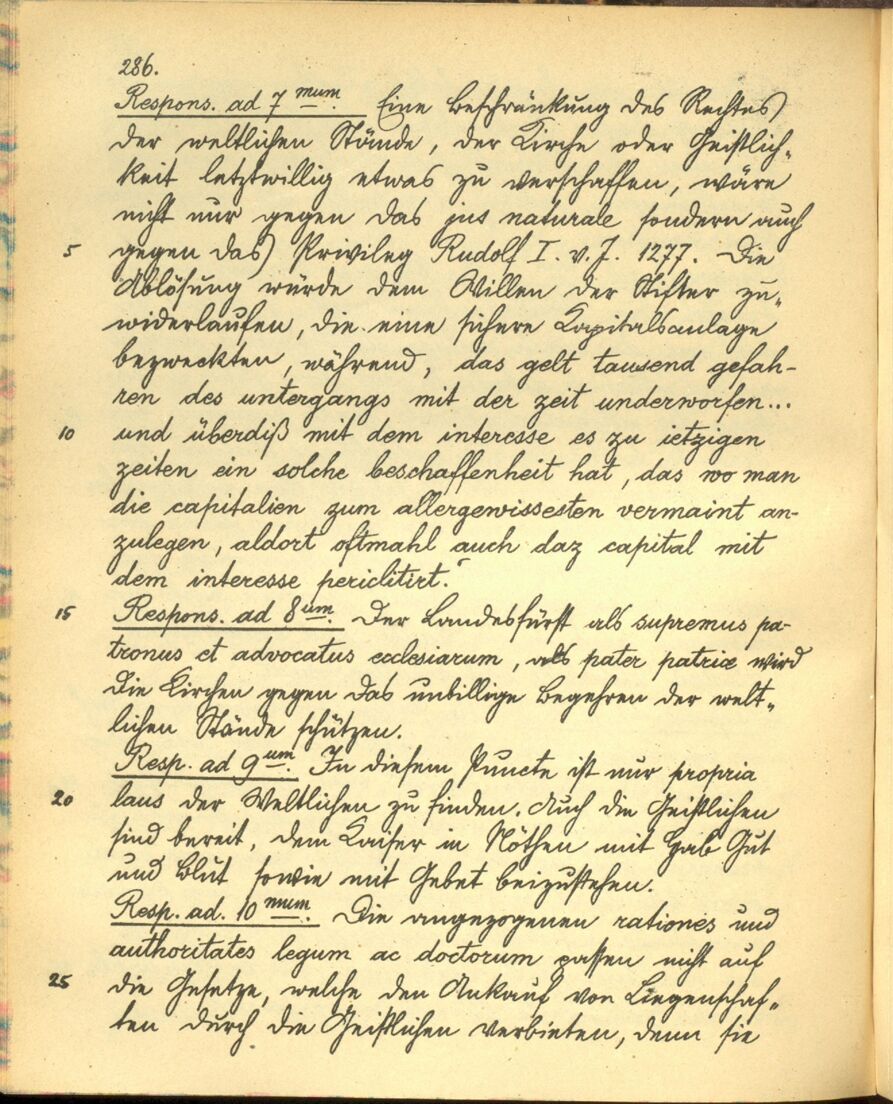 286.
Respons. ad 7mum. Eine Beschränkung des Rechtes
der weltlichen Stände, der Kirche oder Geistlich-
keit letztwillig etwas zu verschaffen, wäre
nicht nur gegen das jus naturale sondern auch
5 gegen das Privileg Rudolf I. v. J. 1277. Die
Ablösung würde dem Willen der Stifter zu-
widerlaufen, die eine sichere Kapitalsanlage
bezweckten, während, das gelt tausend gefah-
ren des untergangs mit der zeit underworfen...
10 und überdiß mit dem interesse es zu ietzigen
zeiten ein solche beschaffenheit hat, das wo man
die capitalien zum allergewissesten vermaint an-
zulegen, aldort oftmahl auch daz capital mit
dem interesse periclitirt."
15 Respons. ad 8um. Der Landesfürst als supremus pa-
tronus et advocatus ecclesiarum, als pater patriæ wird
die Kirchen gegen das unbillige Begehren der welt-
lichen Stände schützen.
Resp. ad 9um. In diesem Puncte ist nur propria
20 laus der Weltlichen zu finden. Auch die Geistlichen
sind bereit, dem Kaiser in Nöthen mit Hab Gut
und Blut sowie mit Gebet beizustehen.
Resp. ad. 10mum. Die angezogenen rationes und
authoritates legum ac doctorum passen nicht auf
25 die Gesetze, welche den Ankauf von Liegenschaf-
ten durch die Geistlichen verbieten, denn sie